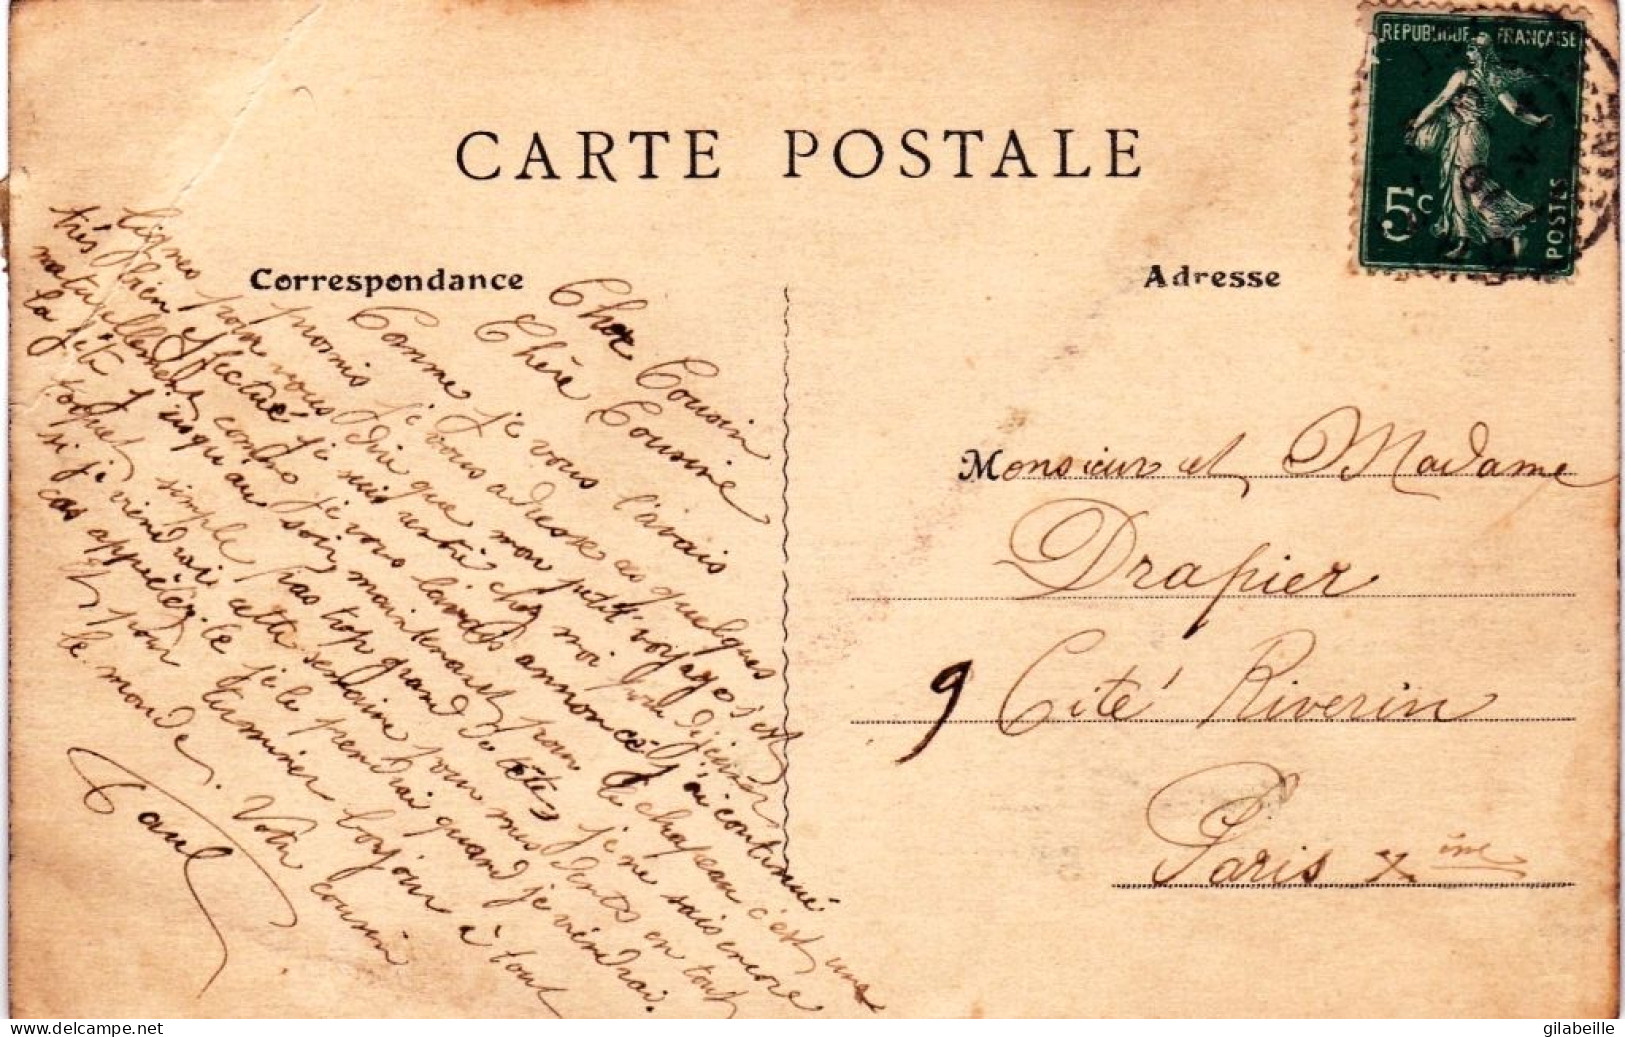 REPUBLIQUE FRANÇAISE
5c
POSTES
CARTE POSTALE
Correspondance
Adresse
Cher Cousin
Chère Cousine
Comme je vous l'avais
promis je vous adresse ces quelques
lignes pour vous dire que mon petit voyage s'est
très bien effectué je suis rentré chez moi pour déjeuner
naturellement comme je vous l'avais annoncé j'ai continué
la fête jusqu'au soir, maintenant pour le chapeau c'est une
toque simple pas trop grand de tête, je ne sais encore
si je viendrai cette semaine pour mes dents en tout
cas apprêtez-le je le prendrai quand je viendrai.
et pour terminer bonjour à tout
le monde. Votre cousin
Paul
Monsieur et Madame
Drapier
9 Cité Riverin
Paris X ème
www.delcampe.net
gilabeille